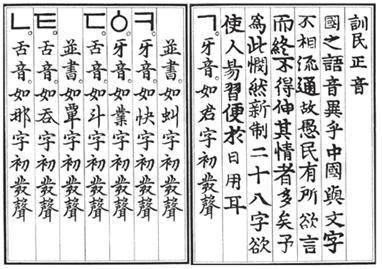 訓民正音
國之語音異乎中國與文字
不相流通故愚民有所欲言
而終不得伸其情者多矣予
爲此憫然新制二十八字欲
使人易習便於日用耳
ㄱ。牙音。如君字初發聲
並書。如虯字初發聲
ㅋ。牙音。如快字初發聲
ㆁ。牙音。如業字初發聲
ㄷ。舌音。如斗字初發聲
並書。如覃字初發聲
ㅌ。舌音。如呑字初發聲
ㄴ。舌音。如那字初發聲